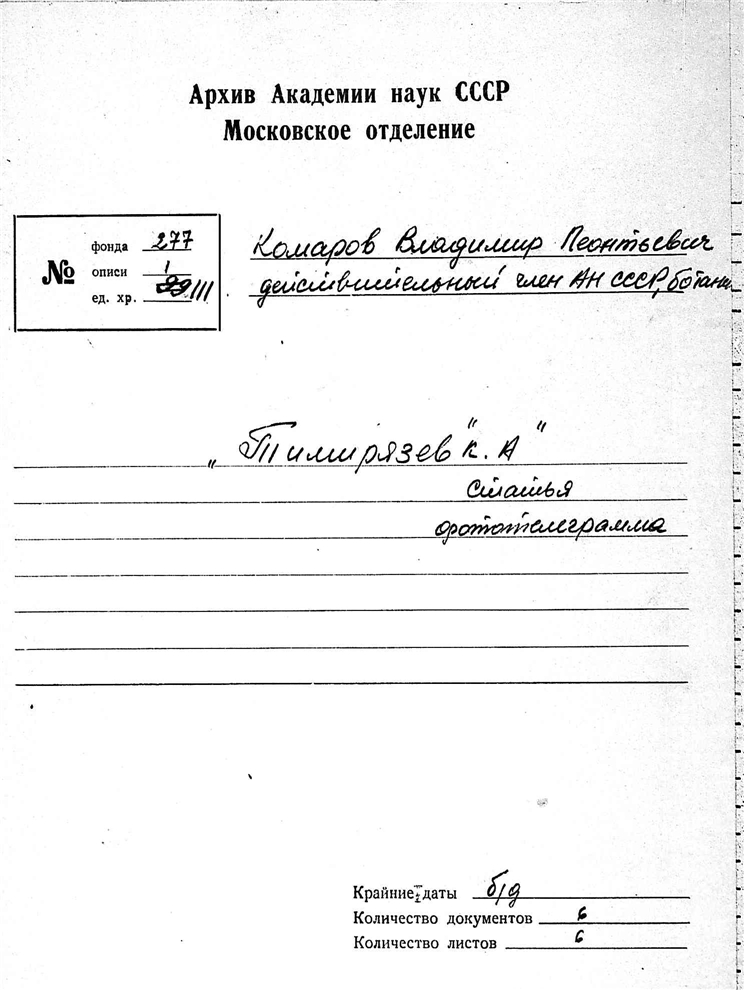 Архив Академии наук СССР
Московское отделение
№
фонда 277
описи 1
ед. хр. 111
Комаров Владимир Леонтьевич
действительный член АН СССР, ботаник
„Тимирязев" К. А"
статья
фототелеграмма
Крайние даты б/д
Количество документов 6
Количество листов 6